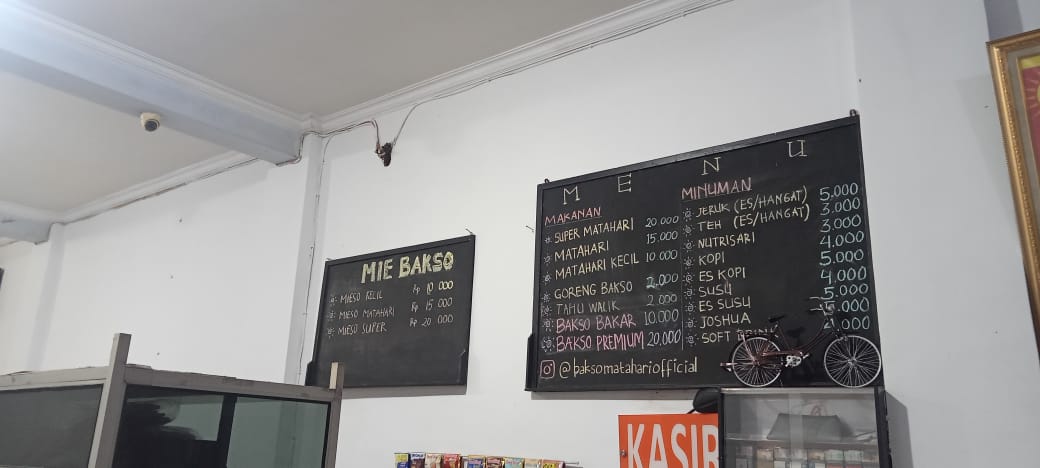 MIE BAKSO
MIESO KECIL Rp 10 000
MIESO MATAHARI Rp 15 000
MIESO SUPER Rp 20 000
MENU
MAKANAN
SUPER MATAHARI 20.000
MATAHARI 15.000
MATAHARI KECIL 10 000
GORENG BAKSO 2.000
TAHU WALIK 2.000
BAKSO BAKAR 10.000
BAKSO PREMIUM 20,000
@baksomataharioffficial
MINUMAN
JERUK (ES/HANGAT) 5.000
TEH (ES/HANGAT) 3.000
NUTRISARI 3.000
KOPI 4.000
ES KOPI 5.000
SUSU 4.000
ES SUSU
JOSHUA
SOFT
KASIR